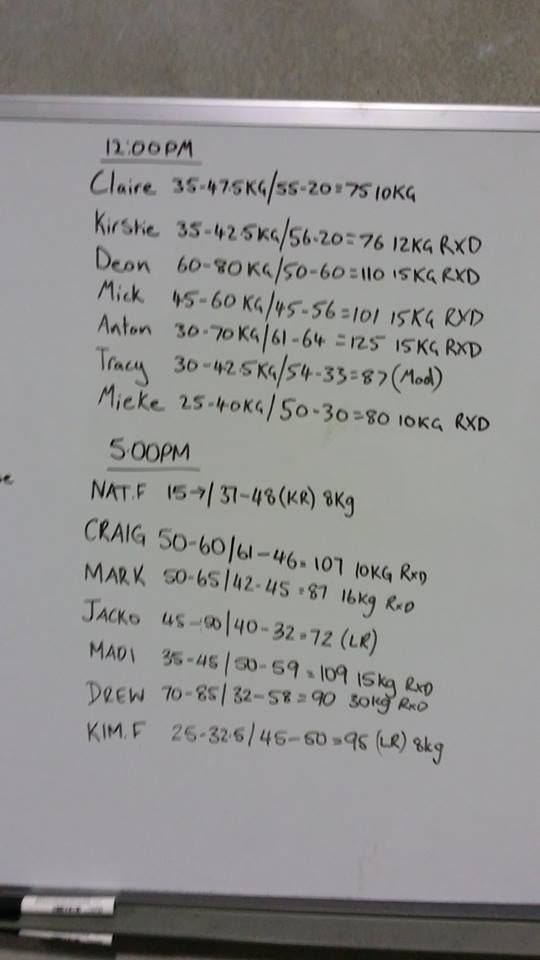 12:00PM
Claire 35-47.5KG/55-20=75 10KG
Kirstie 35-42.5KG/56-20=76 12KG RXD
Deon 60-80KG/50-60=110 15KG RXD
Mick 45-60KG/45-56=101 15KG RXD
Anton 30-70KG/61-64=125 15KG RXD
Tracy 30-42.5KG/54-33=87 (Mod)
Mieke 25-40KG/50-30=80 10KG RXD
5:00PM
NAT.F 15→/37-48(KR) 8Kg
CRAIG 50-60/61-46=107 10KG RXD
MARK 50-65/42-45=87 16Kg RXD
JACKO 45-50/40-32=72 (LR)
MADI 35-45/50-59=109 15Kg RXD
DREW 70-85/32-58=90 30Kg RXD
KIM.F 25-32.5/45-50=95 (LR) 8kg